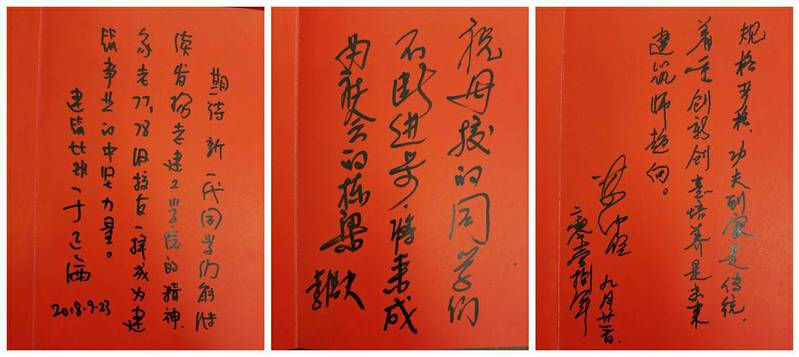 期待新一代同学们能持
续发扬老建工学院的精神,
象老77,78级校友一样成为建
筑事业的中坚力量。
建筑
2018.9.23
祝母校的同学们
不断进步,将来成
为社会的栋梁
规格严格,功夫到家是传统,
着重创新创意培养是未来
建筑师趋向。
零壹捌年
九月廿一日